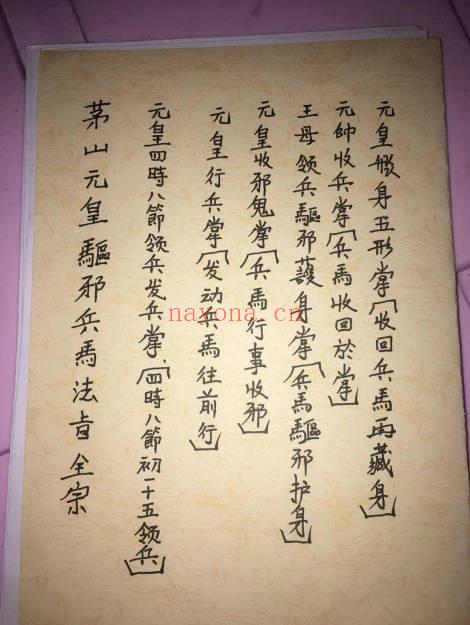 茅山元皇驅邪兵馬法旨全宗
元皇四時八節领兵发兵掌、[四時八節初一十五领兵]
元皇行兵掌[发动兵馬往前行]
元皇收邪鬼掌[兵馬行事收邪]
王母领兵驅邪護身掌[兵馬驅邪护身]
元帥收兵掌[兵馬收回於掌]
元皇身五形掌[收回兵馬再藏身]
naxona.cn